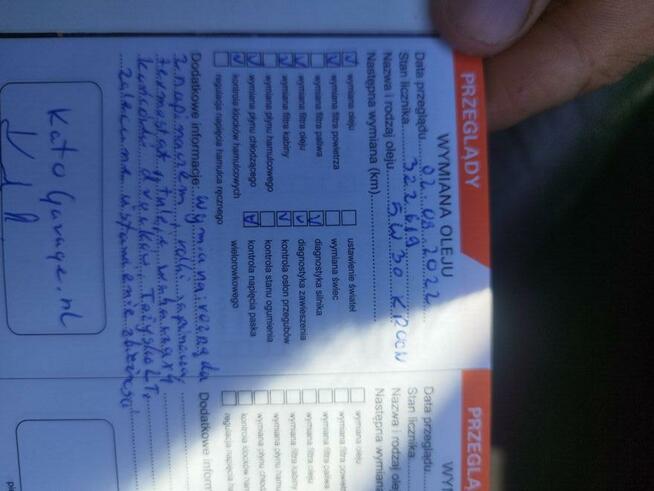 PRZEGLĄDY
WYMIANA OLEJU
Data przeglądu 02.08.2022
Stan licznika 322619
Nazwa i rodzaj oleju 5W30 KROON
Następna wymiana (km)
wymiana oleju
wymiana filtra powietrza
wymiana filtra paliwa
wymiana filtra oleju
wymiana filtra kabiny
wymiana płynu hamulcowego
wymiana płynu chłodzącego
kontrola klocków hamulcowych
regulacja napięcia hamulca ręcznego
ustawienie świateł
wymiana świec
diagnostyka silnika
diagnostyka zawieszenia
kontrola osłon przegubów
kontrola stanu ogumienia
kontrola napięcia paska
wielorowkowego
Dodatkowe informacje: wymiana
z napinaczem, rolki
termostat, tuleje
końcówki
zalecane ustawienie zbieżności
KatoGarage.nl
PRZEGLĄ
WY
Data przeglądu
Stan licznika
Nazwa i rodzaj ole
Następna wymiana
wymiana oleju
wymiana filtra powietrz
wymiana filtra paliwa
wymiana filtra oleju
wymiana filtra kabiny
wymiana płynu ham
wymiana płynu chłod
kontrola klocków ham
regulacja napięcia ha
Dodatkowe inform